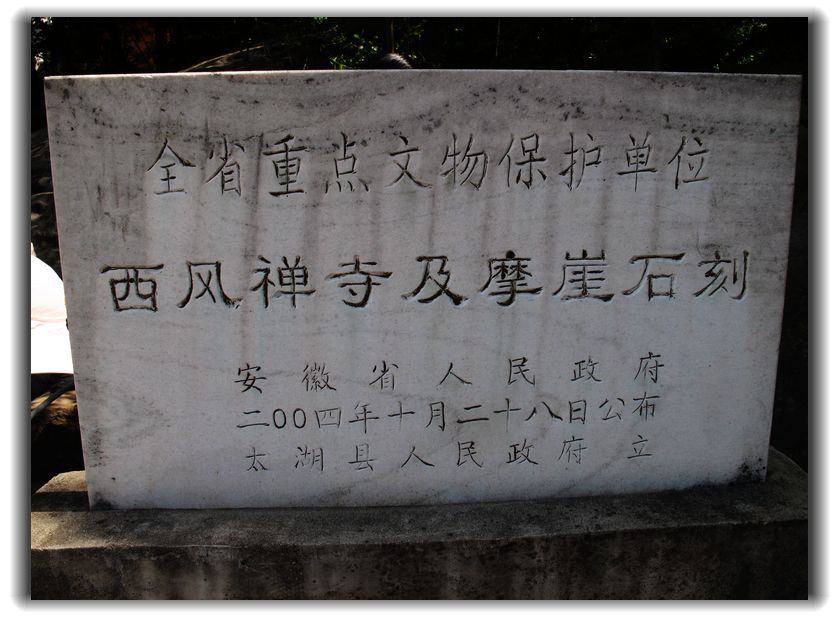 全省重点文物保护单位
西风禅寺及摩崖石刻
安徽省人民政府
二〇〇四年十月二十八日公布
太湖县人民政府立